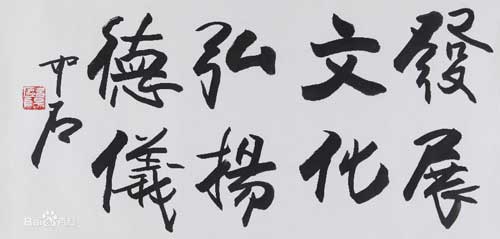 發展
文化
弘揚
德儀
中石
Bai百科